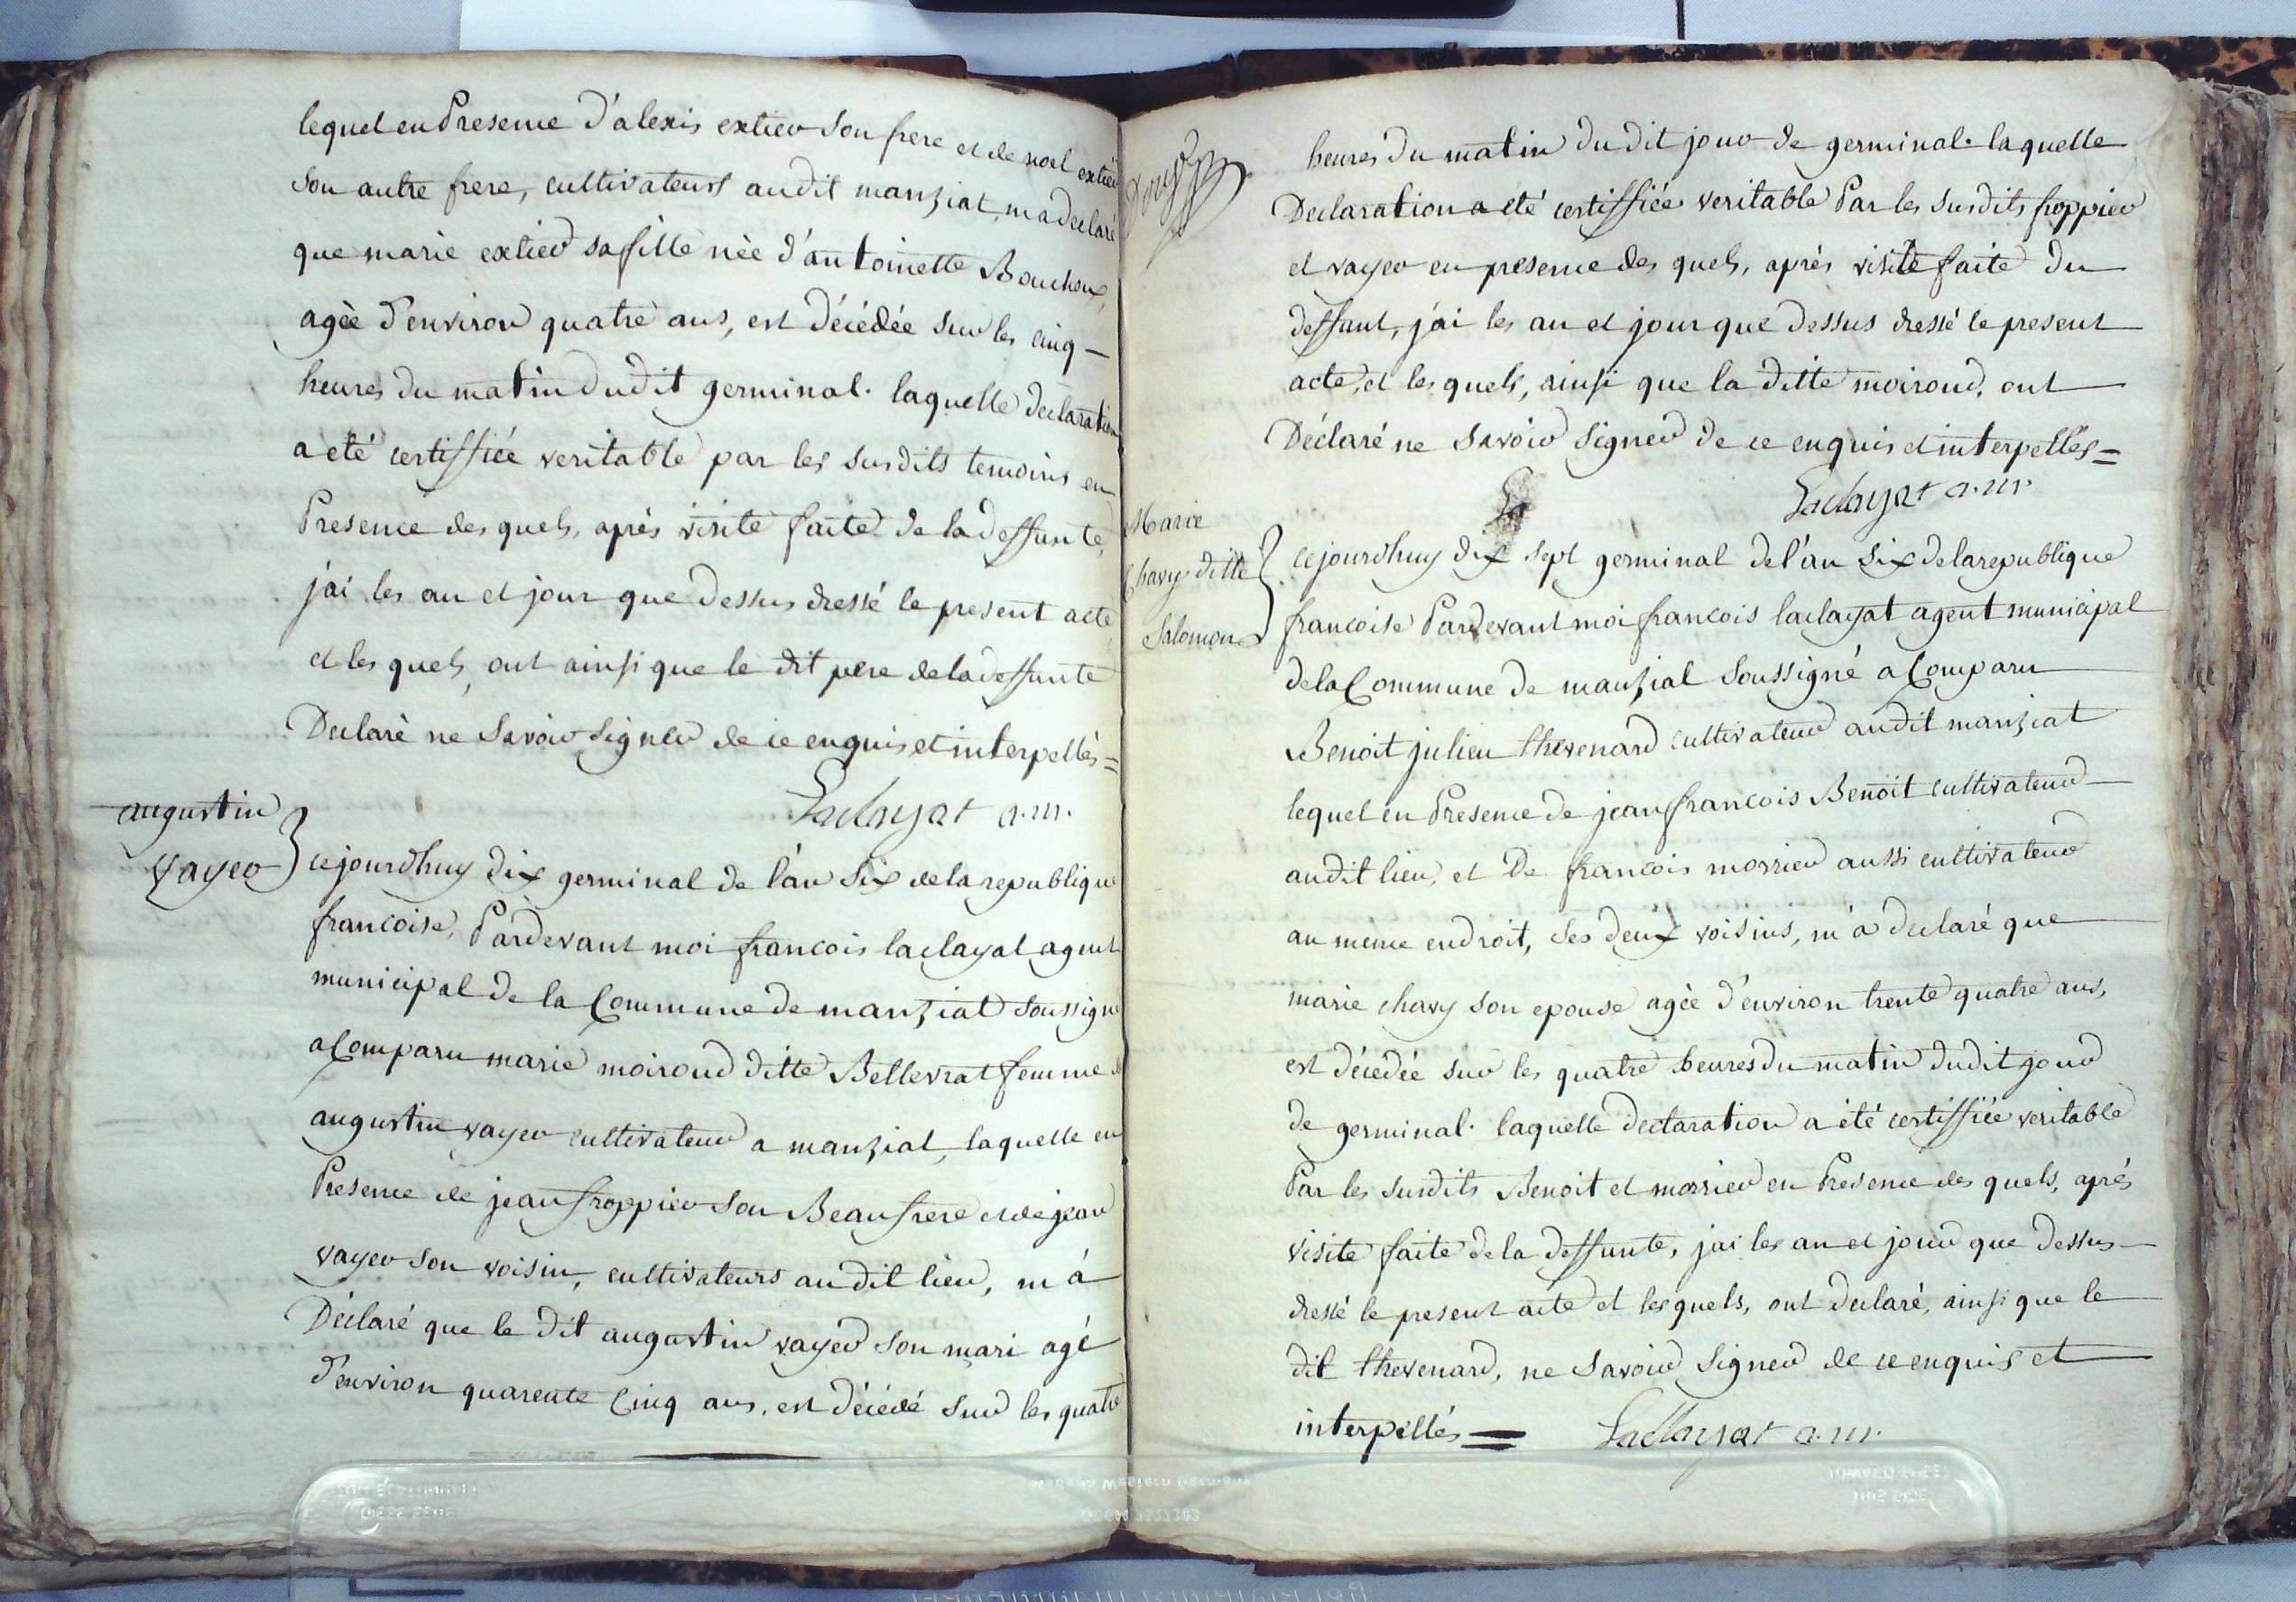 lequel en Presence d'alexis extier son frere et de noel extier
son autre frere, cultivateurs audit manziat, m'a declaré
que marie extier sa fille née d'antoinette Bouchoux,
agèe d'environ quatre ans, est décédée sur les cinq
heures du matin dudit germinal. laquelle declaration
a été certiffiée veritable par les susdits temoins en
Presence des quels, après visite faite de la deffunte,
j'ai les an et jour que dessus dressé le present acte
et les quels, ont ainsi que le dit pere de la deffunte
Declarè ne savoir signer de ce enquis et interpellés =
Laclayat a.m.
augustin
vayer
cejourdhuy dix germinal de l'an six de la republique
francoise, Pardevant moi francois laclayat agent
municipal de la Commune de manziat soussigné
a Comparu marie moiroud ditte Bellevrat femme
augustin vayer cultivateur a manziat, laquelle en
Presence de jean froppier son Beaufrere et de jean
vayer son voisin, cultivateurs audit lieu, m'a
Déclaré que le dit augustin vayer son mari agé
d'environ quarente Cinq ans, est décédé sur les quatre
heures du matin dudit jour de germinal. laquelle
Declaration a eté certiffiée veritable Par les susdits froppier
et vayer en presence des quels, après visite faite du
deffunt, j'ai les an et jour que dessus dressé le present
acte, et les quels, ainsi que la ditte moiroud, ont
Déclaré ne savoir signer de ce enquis et interpellés =
Laclayat a.m.
Marie
Chavy ditte
Salomon
cejourdhuy dix sept germinal de l'an six de la republique
francoise Pardevant moi francois laclayat agent municipal
de la Commune de manziat soussigné a Comparu
Benoit julien thevenard cultivateur audit manziat
lequel en Presence de jean francois Benoit cultivateur
audit lieu, et De francois morrier aussi cultivateur
au meme endroit, ses deux voisins, m'a declaré que
marie chavy son epouse agèe d'environ trente quatre ans,
est décédée sur les quatre heures du matin dudit jour
de germinal. laquelle declaration a été certiffiée veritable
Par les susdits Benoit et morrier en Presence des quels, aprés
visite faite de la deffunte, j'ai les an et jour que dessus
dressé le present acte et lesquels, ont declaré, ainsi que le
dit thevenard, ne savoir signer de ce enquis et
interpellés = Laclayat a.m.